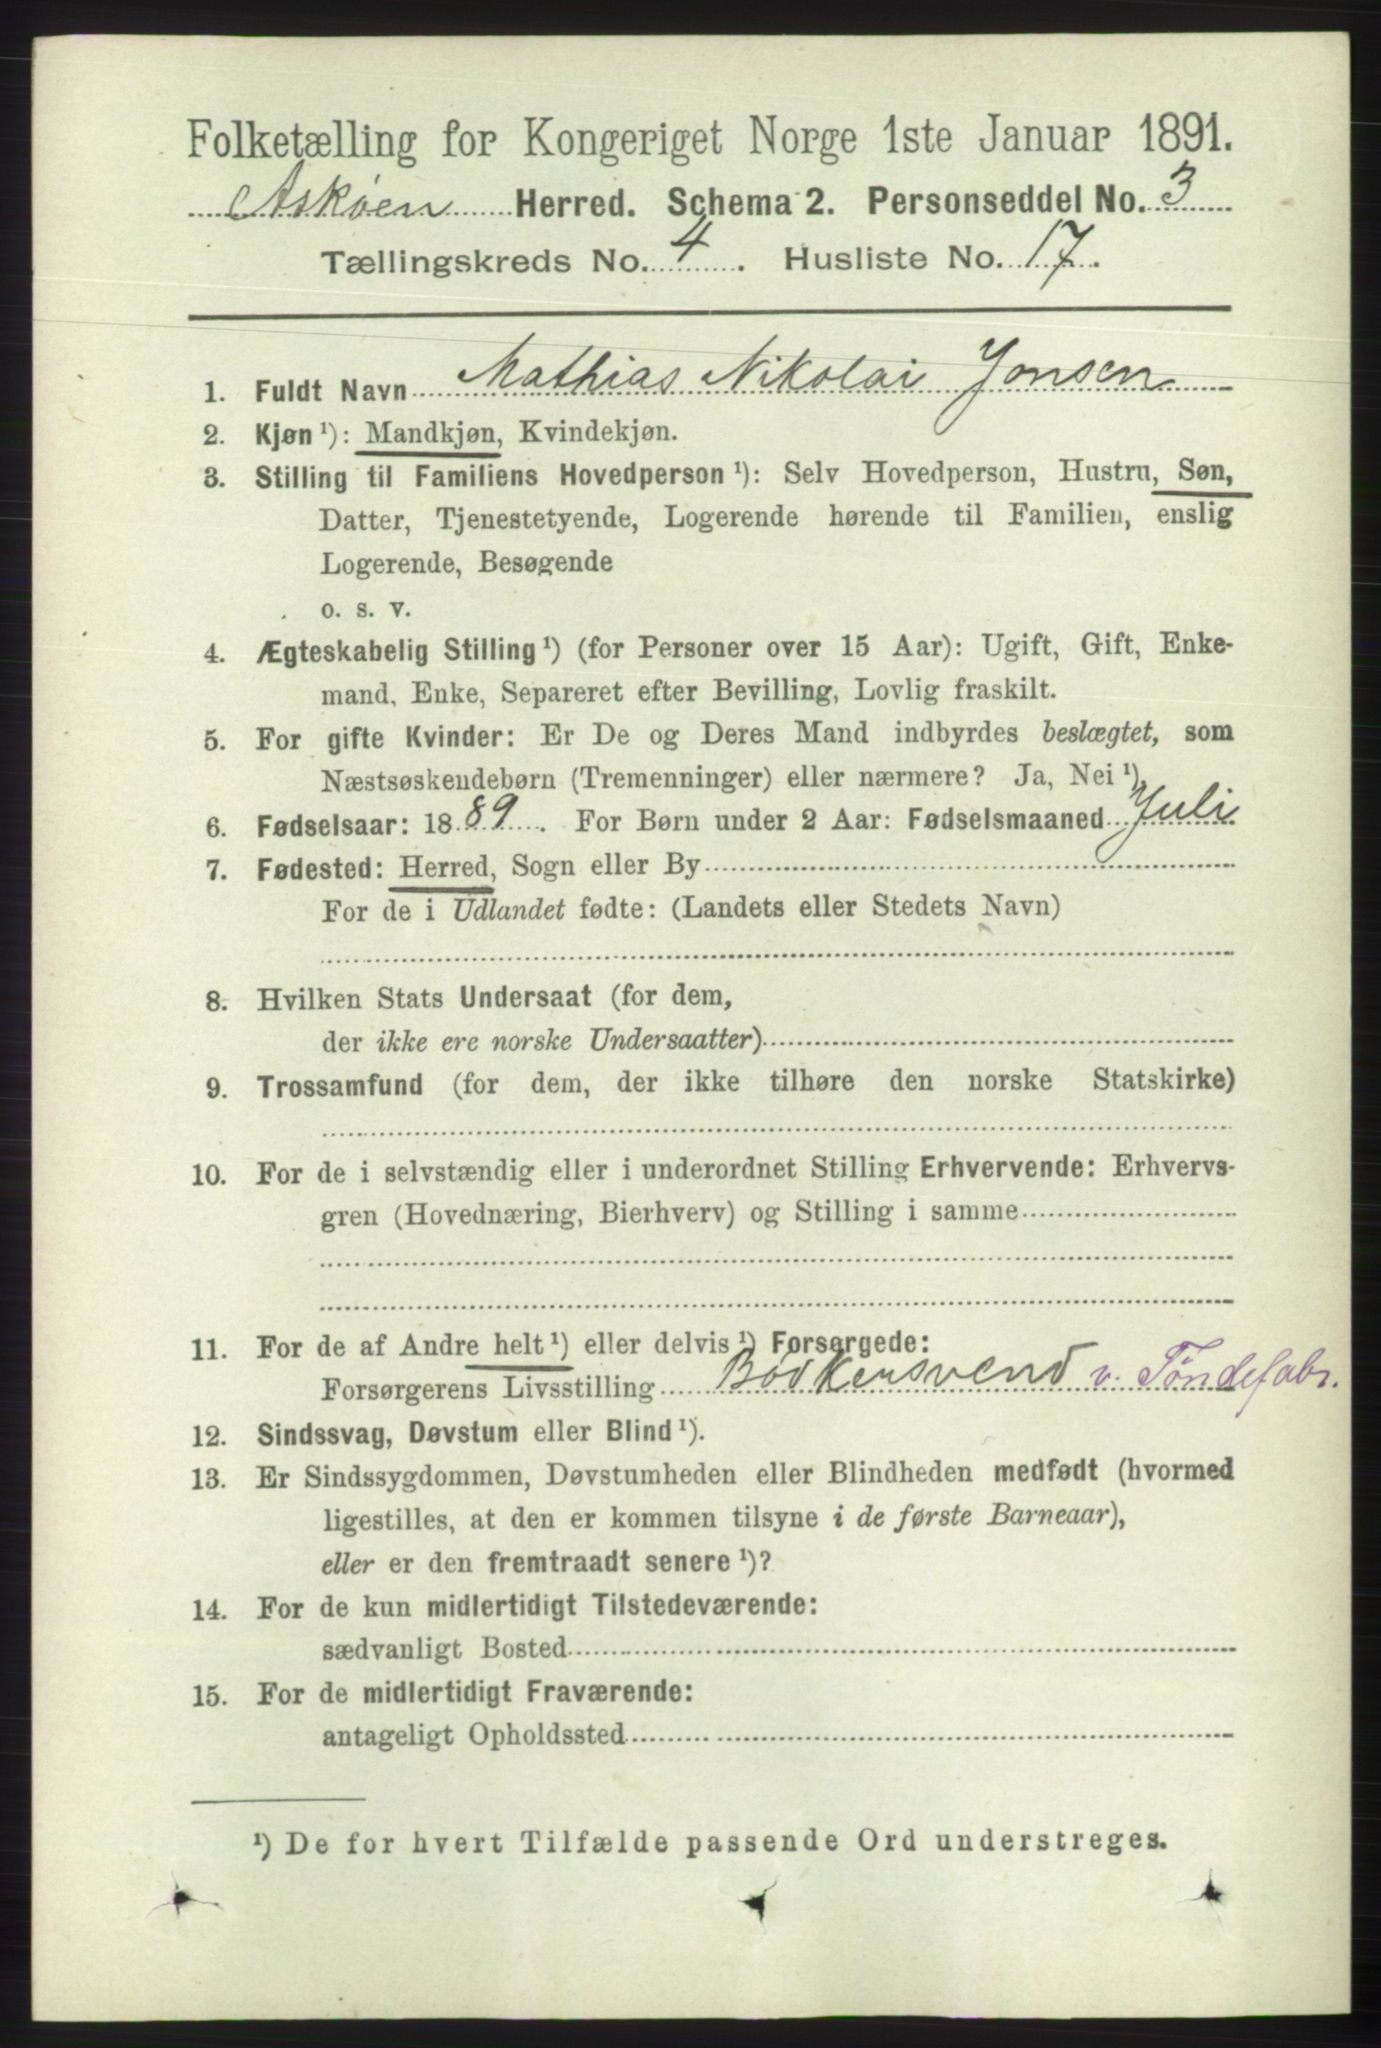 Folketælling for Kongeriget Norge 1ste Januar 1891.
Askøen Herred. Schema 2. Personseddel No. 3
Tællingskreds No. 4. Husliste No. 17.
1. Fuldt Navn Mathias Nikolai Jonsen
2. Kjøn ¹): Mandkjøn, Kvindekjøn.
3. Stilling til Familiens Hovedperson ¹): Selv Hovedperson, Hustru, Søn,
Datter, Tjenestetyende, Logerende hørende til Familien, enslig
Logerende, Besøgende
o. s. v.
4. Ægteskabelig Stilling ¹) (for Personer over 15 Aar): Ugift, Gift, Enke-
mand, Enke, Separeret efter Bevilling, Lovlig fraskilt.
5. For gifte Kvinder: Er De og Deres Mand indbyrdes beslægtet, som
Næstsøskendebørn (Tremenninger) eller nærmere? Ja, Nei ¹).
6. Fødselsaar: 1889. For Børn under 2 Aar: Fødselsmaaned Juli
7. Fødested: Herred, Sogn eller By
For de i Udlandet fødte: (Landets eller Stedets Navn)
8. Hvilken Stats Undersaat (for dem,
der ikke ere norske Undersaatter)
9. Trossamfund (for dem, der ikke tilhøre den norske Statskirke)
10. For de i selvstændig eller i underordnet Stilling Erhvervende: Erhvervs-
gren (Hovednæring, Bierhverv) og Stilling i samme
11. For de af Andre helt ¹) eller delvis ¹) Forsørgede:
Forsørgerens Livsstilling Bödkersvend v. Töndefabr.
12. Sindssvag, Døvstum eller Blind ¹).
13. Er Sindssygdommen, Døvstumheden eller Blindheden medfødt (hvormed
ligestilles, at den er kommen tilsyne i de første Barneaar),
eller er den fremtraadt senere ¹)?
14. For de kun midlertidigt Tilstedeværende:
sædvanligt Bosted
15. For de midlertidigt Fraværende:
antageligt Opholdssted
¹) De for hvert Tilfælde passende Ord understreges.